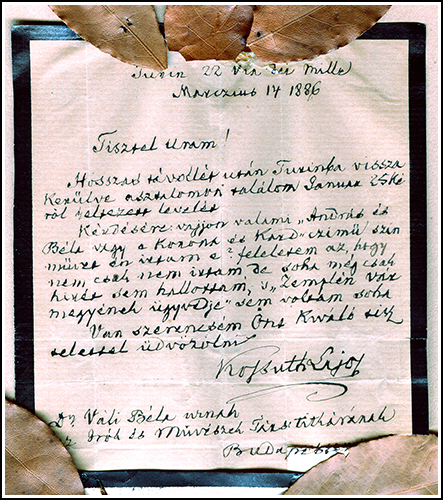 Turin 22 Via dei Mille
Marczius 17 1886
Tisztel Uram!
Hosszas távollét után Turinba vissza
kerülve asztalomon találom Januar 25ké
ről keltezett levelét
Kérdésére vajjon valami „András és
Béla vagy a Korona és Kard" czimű szin
művet én irtam e? feleletem az, hogy
nem csak nem irtam, de soha még csak
hirét sem hallottam, s „Zemplén vár
megyének ügyvédje" sem voltam soha
Van szerencsém Önt kiváló tisz
telettel üdvözölni
Kossuth Lajos
Dr Váli Béla urnak
az Irók és Művészek Társ. titkárának
Budapesten